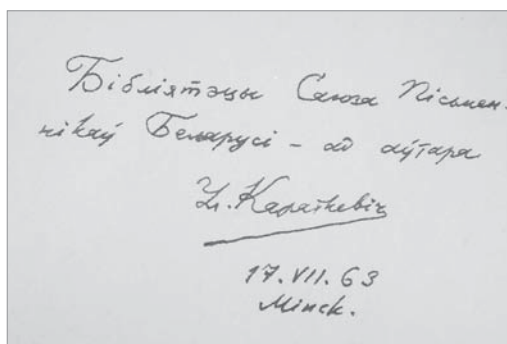 Бібліятэцы Саюза Пісьмен-
нікаў Беларусі – ад аўтара
Ул. Караткевіч
17.VII.63
Мінск.